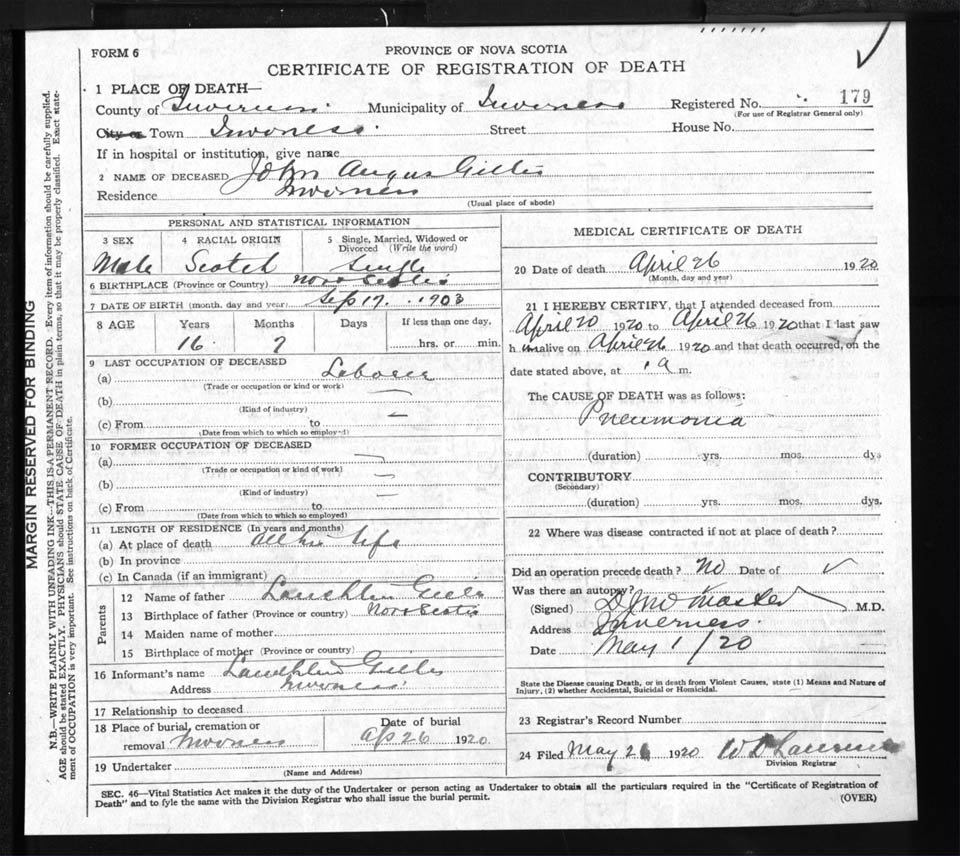 FORM 6
PROVINCE OF NOVA SCOTIA
CERTIFICATE OF REGISTRATION OF DEATH
1 PLACE OF DEATH—
County of Inverness Municipality of Inverness Registered No. 179
(For use of Registrar General only)
City or Town Inverness Street House No.
If in hospital or institution, give name
2 NAME OF DECEASED John Angus Gillis
Residence Inverness
(Usual place of abode)
PERSONAL AND STATISTICAL INFORMATION
3 SEX 4 RACIAL ORIGIN 5 Single, Married, Widowed or
Divorced (Write the word)
Male Scotch Single
6 BIRTHPLACE (Province or Country) Nova Scotia
7 DATE OF BIRTH (month, day and year) Sep 17 1903
8 AGE Years Months Days If less than one day,
16 7 hrs. or min.
9 LAST OCCUPATION OF DECEASED
(a) Laborer
(Trade or occupation or kind or work)
(b)
(Kind of industry)
(c) From to
(Date from which to which so employed)
10 FORMER OCCUPATION OF DECEASED
(a)
(Trade or occupation or kind of work)
(b)
(Kind of industry)
(c) From to
(Date from which to which so employed)
11 LENGTH OF RESIDENCE (In years and months)
(a) At place of death All his life
(b) In province
(c) In Canada (if an immigrant)
Parents
12 Name of father Lauchlin Gillis
13 Birthplace of father (Province or country) Nova Scotia
14 Maiden name of mother
15 Birthplace of mother (Province or country)
16 Informant's name Lauchlin Gillis
Address Inverness
17 Relationship to deceased
18 Place of burial, cremation or Date of burial
removal Inverness Ap 26 1920
19 Undertaker
(Name and Address)
MEDICAL CERTIFICATE OF DEATH
20 Date of death April 26 1920
(Month, day and year)
21 I HEREBY CERTIFY, that I attended deceased from
April 20 1920 to April 26 1920 that I last saw
h im alive on April 26 1920 and that death occurred, on the
date stated above, at 1 a m.
The CAUSE OF DEATH was as follows:
Pneumonia
(duration) yrs. mos. dys
CONTRIBUTORY
(Secondary)
(duration) yrs. mos. dys.
22 Where was disease contracted if not at place of death?
Did an operation precede death? No Date of
Was there an autopsy?
(Signed) M.D.
Address Inverness.
Date May 1/20
State the Disease causing Death, or in death from Violent Causes, state (1) Means and Nature of
Injury, (2) whether Accidental, Suicidal or Homicidal.
23 Registrar's Record Number
24 Filed May 1920
Division Registrar
SEC. 46—Vital Statistics Act makes it the duty of the Undertaker or person acting as Undertaker to obtain all the particulars required in the "Certificate of Registration of
Death" and to fyle the same with the Division Registrar who shall issue the burial permit. (OVER)
MARGIN RESERVED FOR BINDING
N.B.—WRITE PLAINLY WITH UNFADING INK—THIS IS A PERMANENT RECORD. Every item of information should be carefully supplied.
AGE should be stated EXACTLY. PHYSICIANS should STATE CAUSE OF DEATH in plain terms, so that it may be properly classified. Exact state-
ment of OCCUPATION is very important. See instructions on back of Certificate.